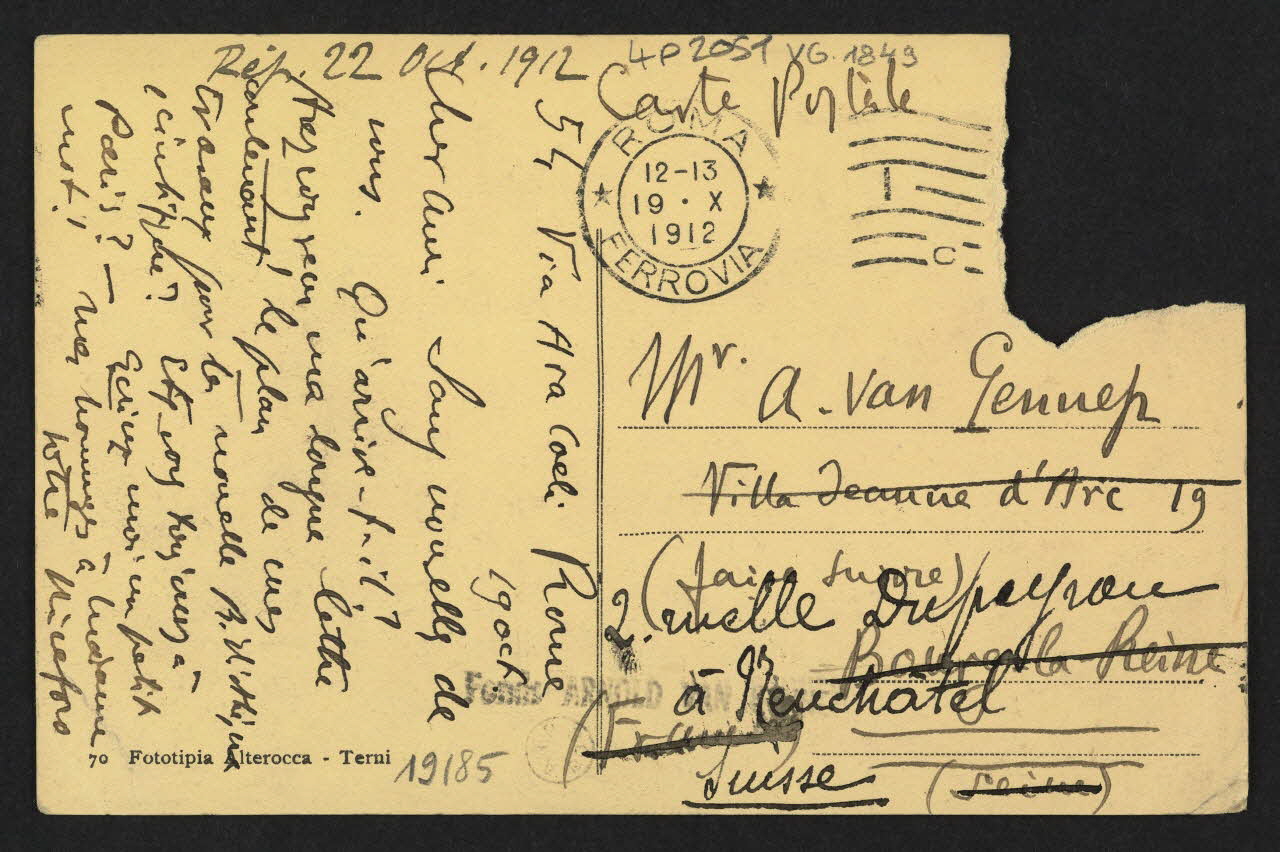 Rép. 22 Oct. 1912
4P 20ST VG. 1849
Carte Postale
ROMA
12-13
19 · X
1912
FERROVIA
54 Via Ara Coeli Rome
19 oct.
Cher ami Sans nouvelles de
vous. Qu'arrive-t-il?
Avez vous reçu ma longue lettre
Récentement, le plan de mes
travaux pour la nouvelle R. d'
scientifique? Etes vous toujours à
Paris? — Ecrivez moi un petit
mot! mes hommages à madame
votre Niceforo
Mr. A. van Gennep
Villa Jeanne d'Arc 19
(faire suivre)
2. ruelle Dupeyrou
Bourg-la-Reine
à Neuchâtel
(France)
Suisse
(Seine)
Fonds ARNOLD VAN
70 Fototipia Alterocca - Terni
19/85